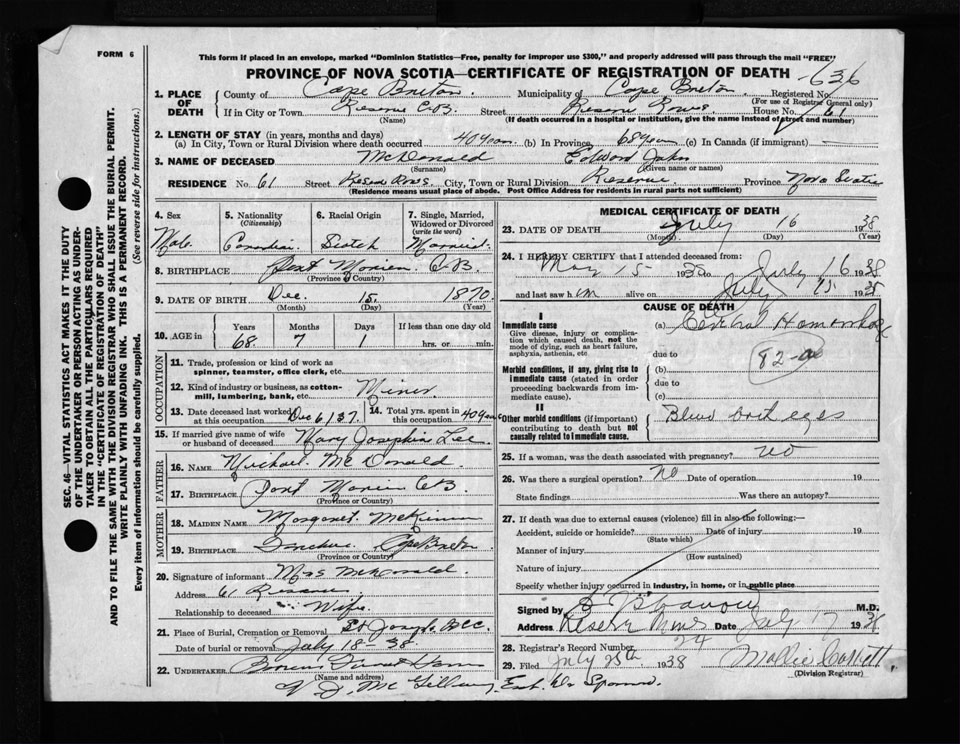 FORM 6
This form if placed in an envelope, marked "Dominion Statistics—Free, penalty for improper use $300," and properly addressed will pass through the mail "FREE"
PROVINCE OF NOVA SCOTIA—CERTIFICATE OF REGISTRATION OF DEATH -636
1. PLACE OF DEATH County of Cape Breton Municipality of Cape Breton Registered No.
(For use of Registrar General only)
If in City or Town Reserve C.B. Street Reserve Rows House No. 61
(Name) (If death occurred in a hospital or institution, give the name instead of street and number)
2. LENGTH OF STAY (in years, months and days)
(a) In City, Town or Rural Division where death occurred 40 years. (b) In Province, 68 years (c) In Canada (if immigrant) —
3. NAME OF DECEASED McDonald Edward John
(Surname) (Given name or names)
RESIDENCE No. 61 Street Reserve Rows. City, Town or Rural Division Reserve. Province Nova Scotia
(Residence means usual place of abode. Post Office Address for residents in rural parts not sufficient)
4. Sex Male
5. Nationality (Citizenship) Canadian
6. Racial Origin Scotch
7. Single, Married, Widowed or Divorced (write the word) Married.
8. BIRTHPLACE Port Morien C.B.
(Province or Country)
9. DATE OF BIRTH Dec. 15. 1870
(Month) (Day) (Year)
10. AGE in Years Months Days If less than one day old
68 7 1 hrs. or min.
OCCUPATION
11. Trade, profession or kind of work as spinner, teamster, office clerk, etc.
12. Kind of industry or business, as cotton-mill, lumbering, bank, etc. Miner
13. Date deceased last worked at this occupation Dec 6/37. 14. Total yrs. spent in this occupation 40 years
15. If married give name of wife or husband of deceased Mary Josephine Lee
FATHER
16. NAME Michael McDonald
17. BIRTHPLACE Port Morien C.B
(Province or Country)
MOTHER
18. MAIDEN NAME Margaret McKinnon
19. BIRTHPLACE Cape Breton
(Province or Country)
20. Signature of informant Mrs McDonald.
Address 61 Reserve
Relationship to deceased Wife.
21. Place of Burial, Cremation or Removal St Josephs
Date of burial or removal July 18-38.
22. UNDERTAKER
(Name and address)
V. J. Mc Gillivary
MEDICAL CERTIFICATE OF DEATH
23. DATE OF DEATH July 16 1938
(Month) (Day) (Year)
24. I HEREBY CERTIFY that I attended deceased from:
May 15 1938 to July 16 1938
and last saw him alive on July 15 1938
CAUSE OF DEATH
I
Immediate cause
Give disease, injury or complication which caused death, not the mode of dying, such as heart failure, asphyxia, asthenia, etc
(a) Cerebral Hemorrhage
due to
82-a
Morbid conditions, if any, giving rise to immediate cause (stated in order proceeding backwards from immediate cause).
(b)
due to
(c)
II
Other morbid conditions (if important) contributing to death but not causally related to immediate cause.
Blind both eyes
25. If a woman, was the death associated with pregnancy? no
26. Was there a surgical operation? No Date of operation 19
State findings Was there an autopsy?
27. If death was due to external causes (violence) fill in also the following:—
Accident, suicide or homicide? Date of injury 19
(State which)
Manner of injury
(How sustained)
Nature of injury
Specify whether injury occurred in industry, in home, or in public place
Signed by M.D.
Address Reserve Mines Date July 17 1938
28. Registrar's Record Number 24
29. Filed July 25th 1938
(Division Registrar)
SEC. 46—VITAL STATISTICS ACT MAKES IT THE DUTY
OF THE UNDERTAKER OR PERSON ACTING AS UNDER-
TAKER TO OBTAIN ALL THE PARTICULARS REQUIRED
IN THE "CERTIFICATE OF REGISTRATION OF DEATH"
AND TO FILE THE SAME WITH THE DIVISION REGISTRAR WHO SHALL ISSUE THE BURIAL PERMIT.
WRITE PLAINLY WITH UNFADING INK. THIS IS A PERMANENT RECORD.
Every item of information should be carefully supplied. (See reverse side for instructions.)